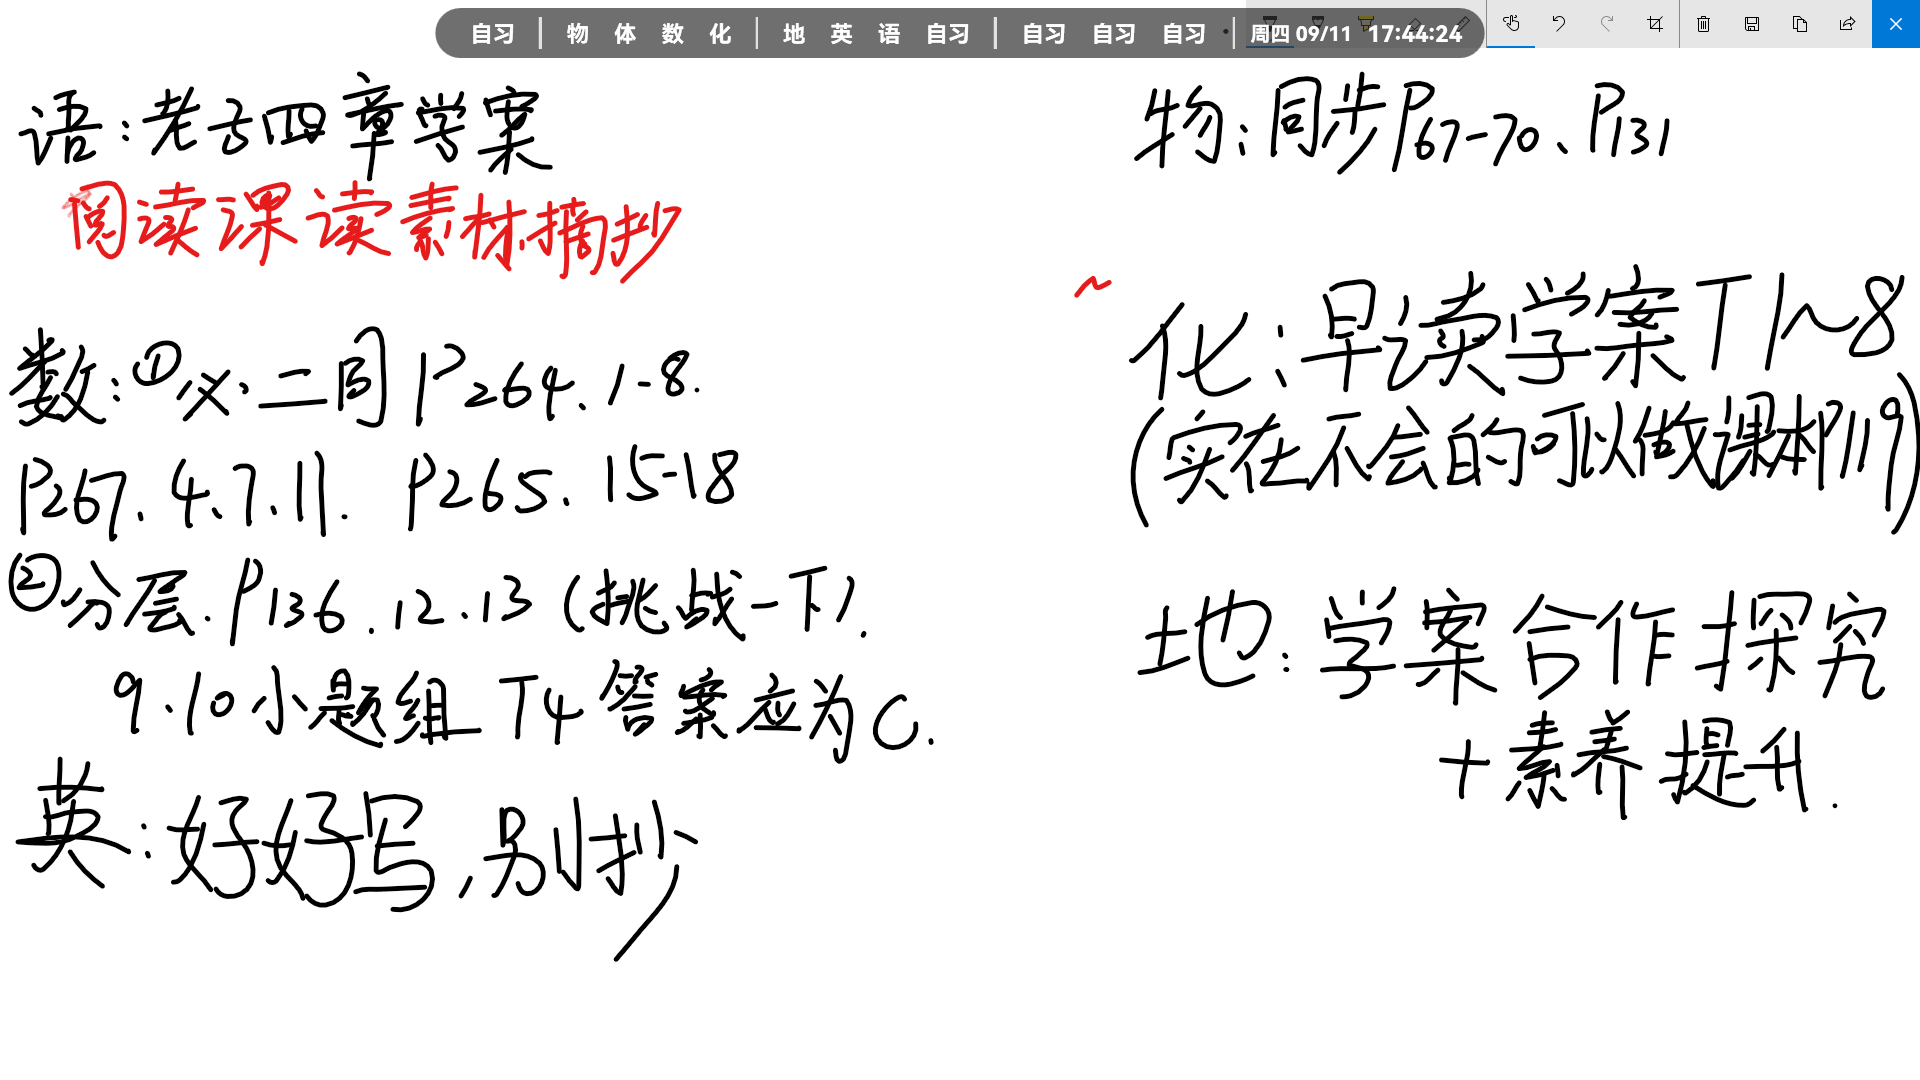 自习 | 物 体 数 化 | 地 英 语 自习 | 自习 自习 自习 | 周四 09/11 17:44:24
语:老子四章学案
阅读课读素材摘抄
数:①必二同P264.1-8.
P267.4.7.11. P265.15-18
②分层.P136.12.13(挑战一下).
9.10小题组T4答案应为C.
英:好好写,别抄
物:同步P67-70、P131
~
化:早读学案T1~8
(实在不会的可以做课本P119)
地:学案合作探究
+素养提升.